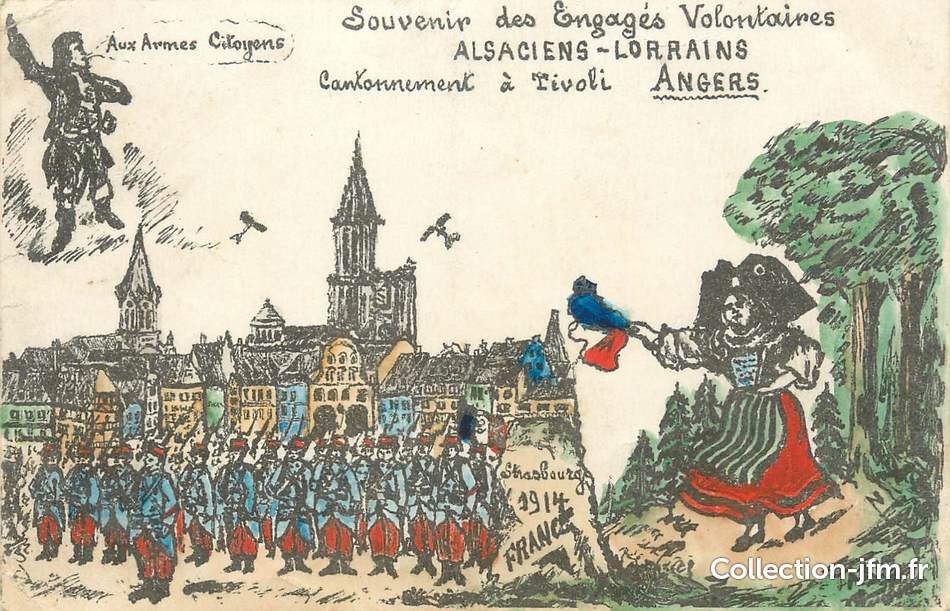 Souvenir des Engagés Volontaires
ALSACIENS-LORRAINS
Cantonnement à Tivoli ANGERS.
Aux Armes Citoyens
Strasbourg
1914
FRANCE
Collection-jfm.fr